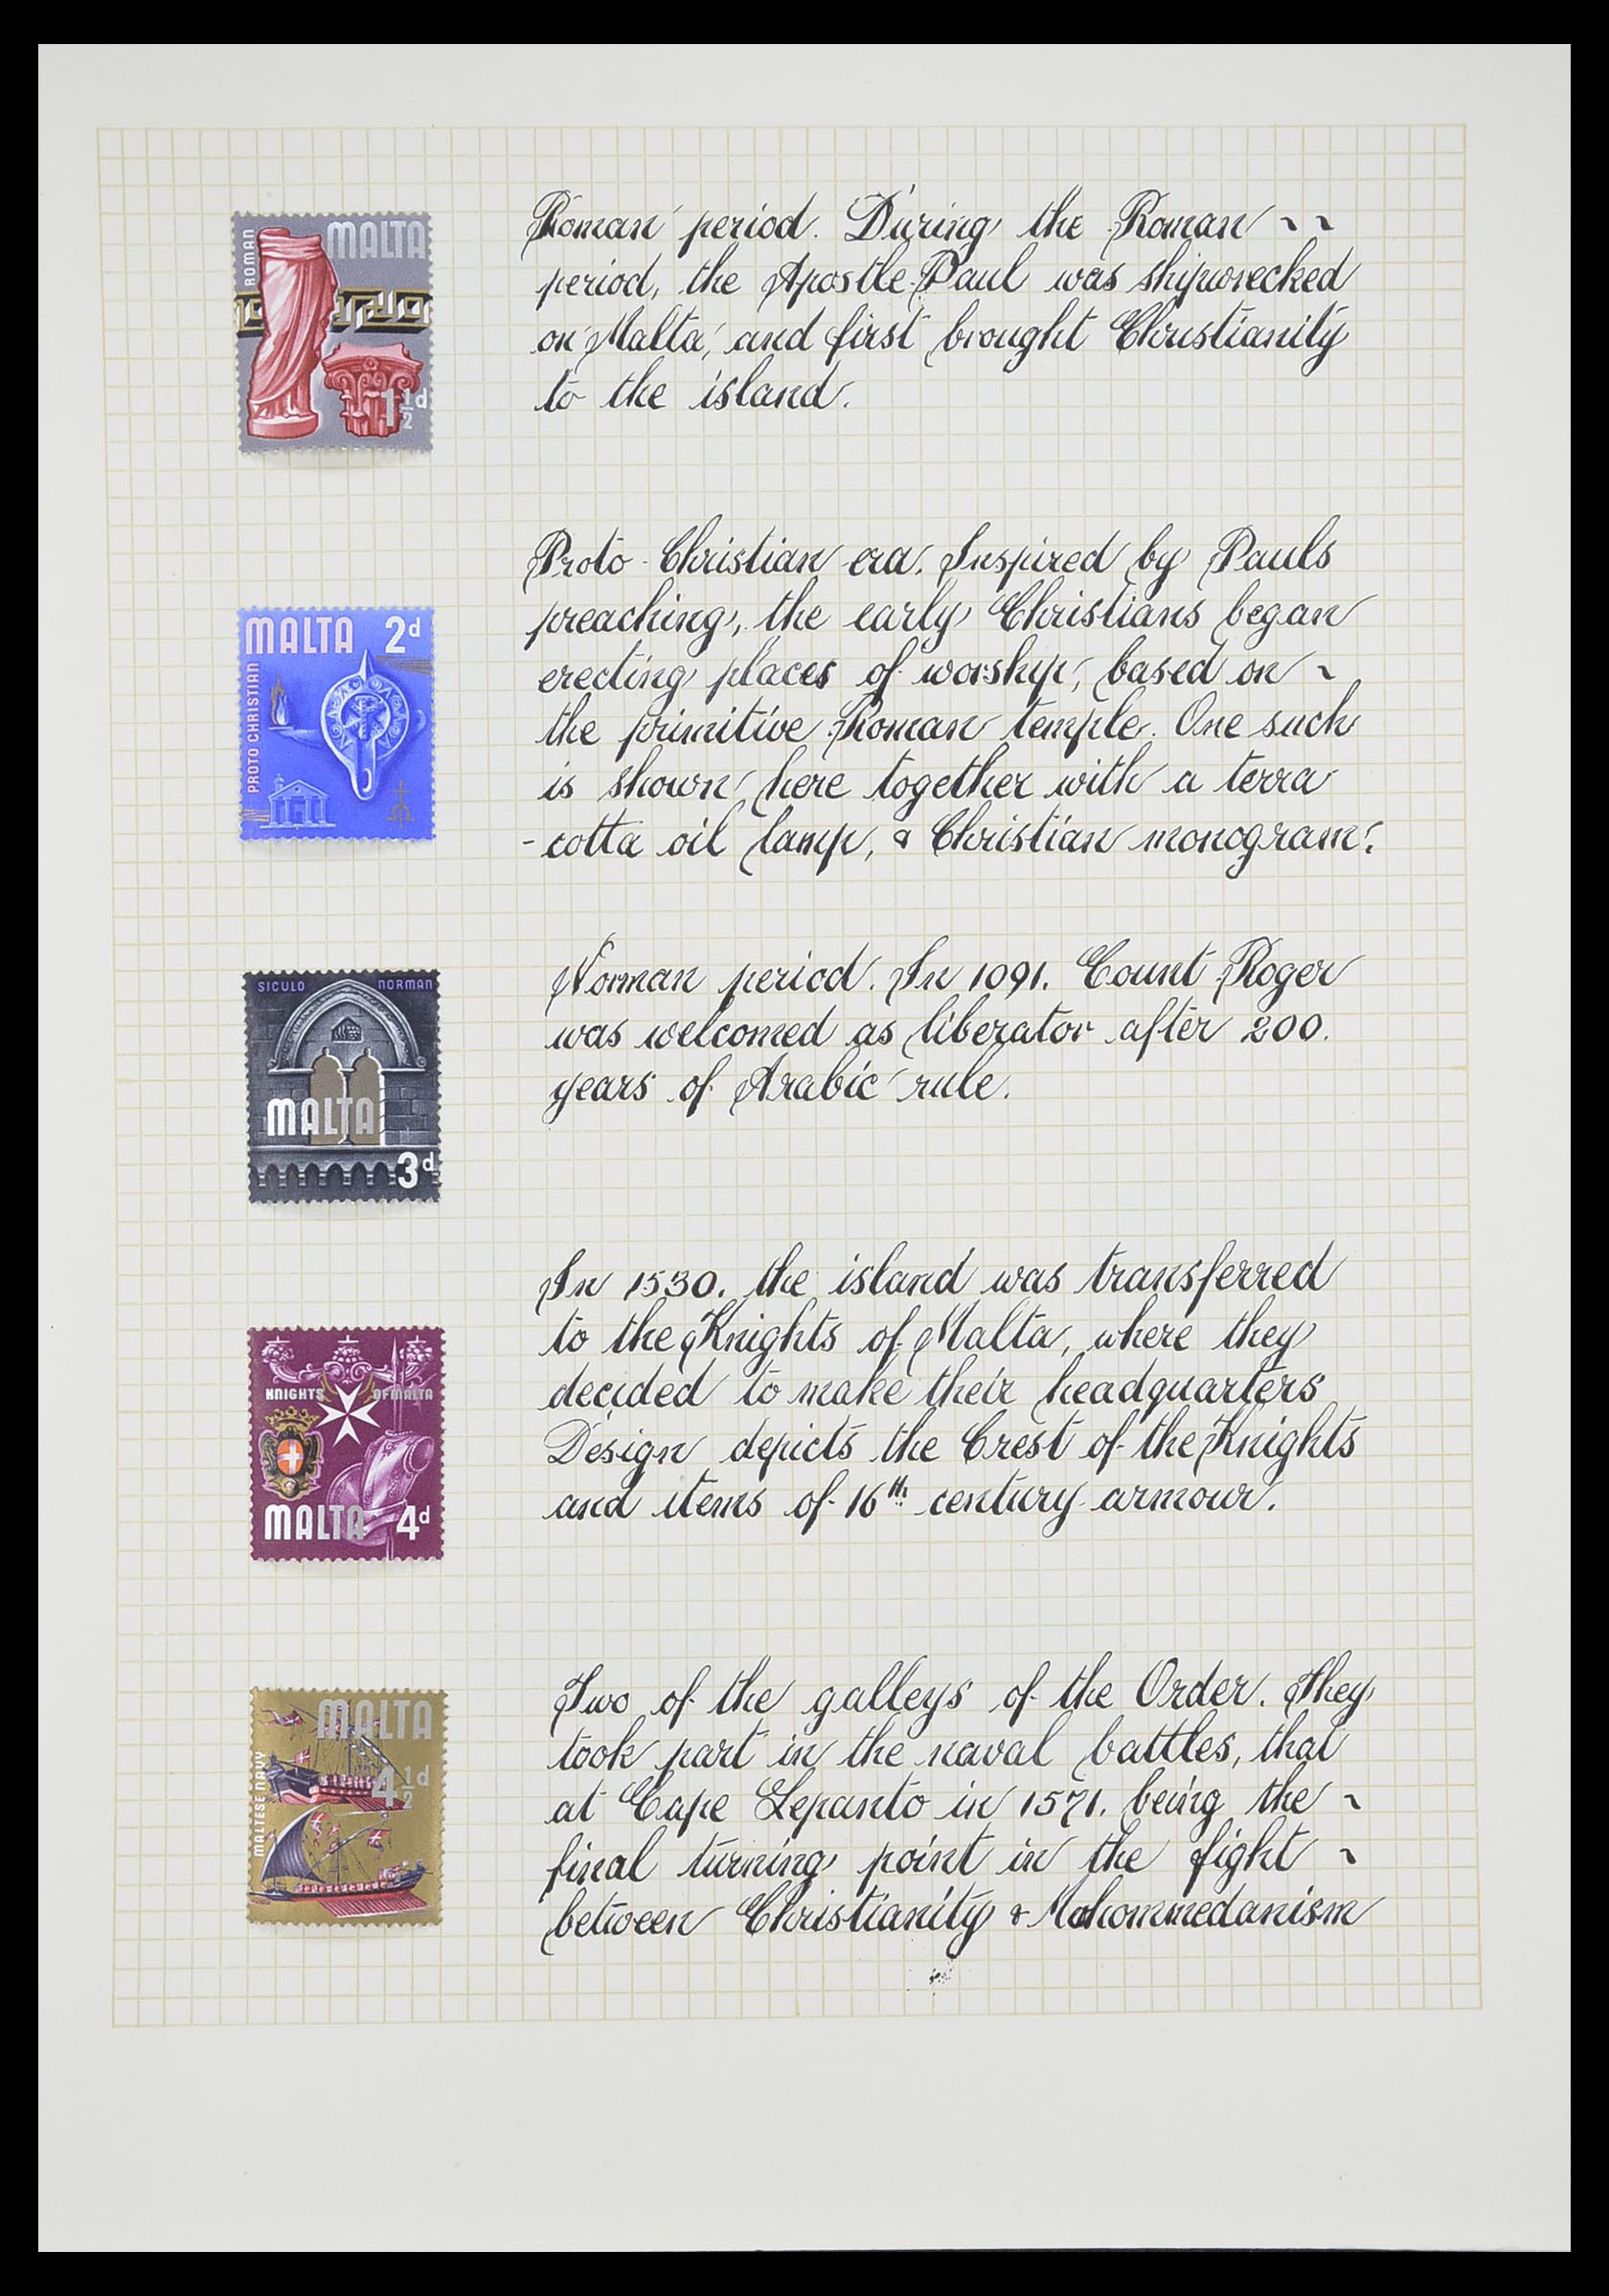 ROMAN
MALTA
1½d
Roman period. During the Roman ~ ~
period, the Apostle Paul was shipwrecked
on Malta, and first brought Christianity
to the island.
MALTA 2d
PROTO CHRISTIAN
Proto-Christian era. Inspired by Pauls
preaching, the early Christians began
erecting places of worship, based on ~
the primitive Roman temple. One such
is shown here together with a terra
-cotta oil lamp, & Christian monogram.
SICULO NORMAN
MALTA
3d
Norman period. In 1091. Count Roger
was welcomed as liberator after 200.
years of Arabic rule.
KNIGHTS OF MALTA
MALTA 4d
In 1530. the island was transferred
to the Knights of Malta, where they
decided to make their headquarters
Design depicts the Crest of the Knights
and items of 16th century armour.
MALTA
4½d
MALTESE NAVY
Two of the galleys of the Order. They
took part in the naval battles, that
at Cape Lepanto in 1571. being the ~
final turning point in the fight ~
between Christianity & Mohommedanism